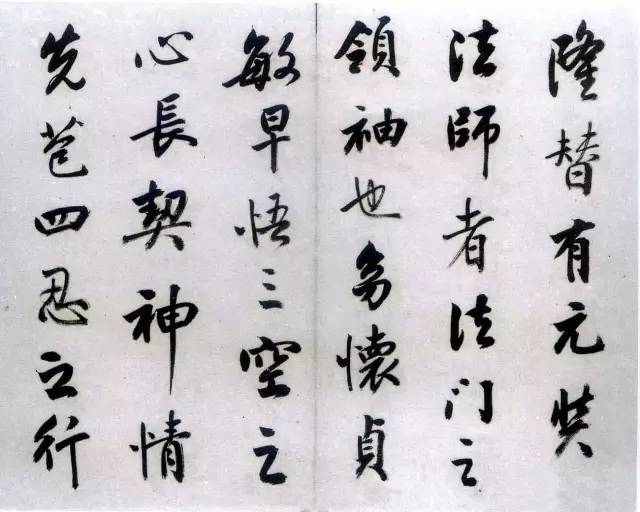 隆替有元奘
法師者法門之
領袖也幼懷貞
敏早悟三空之
心長契神情
先苞四忍之行